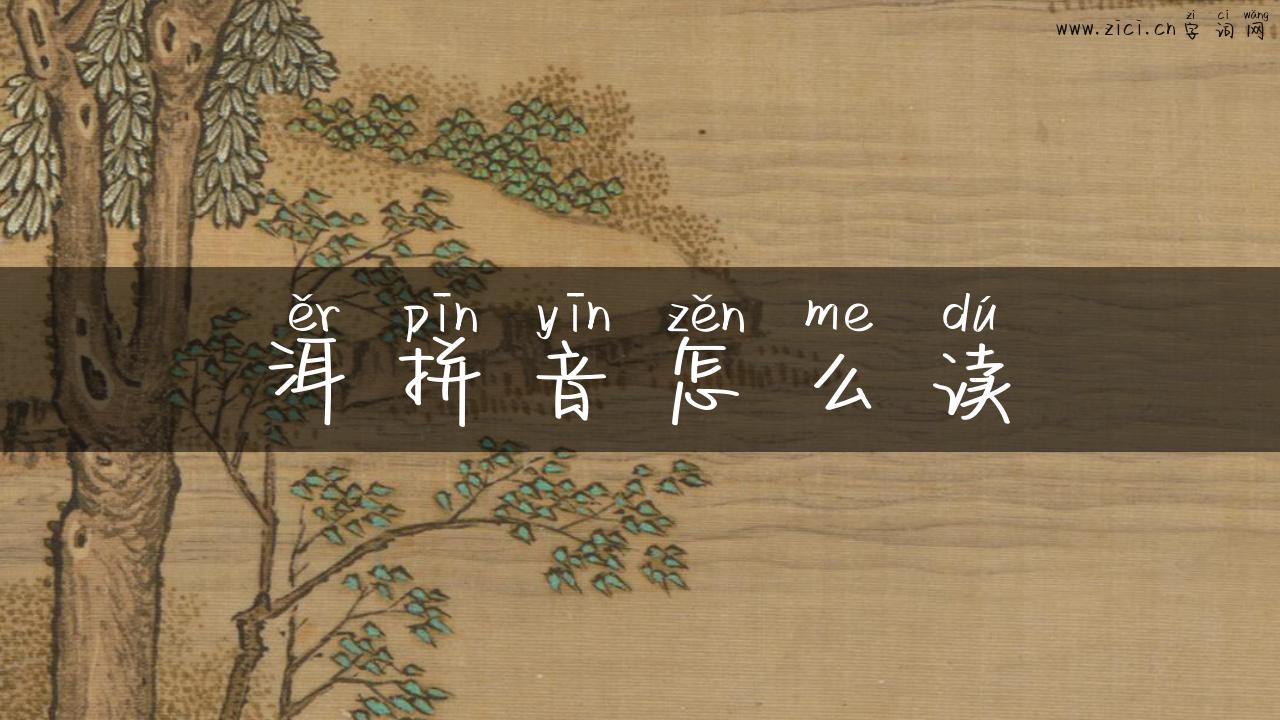 zì cí wǎng
www.zici.cn 字词网
ěr pīn yīn zěn me dú
洱拼音怎么读